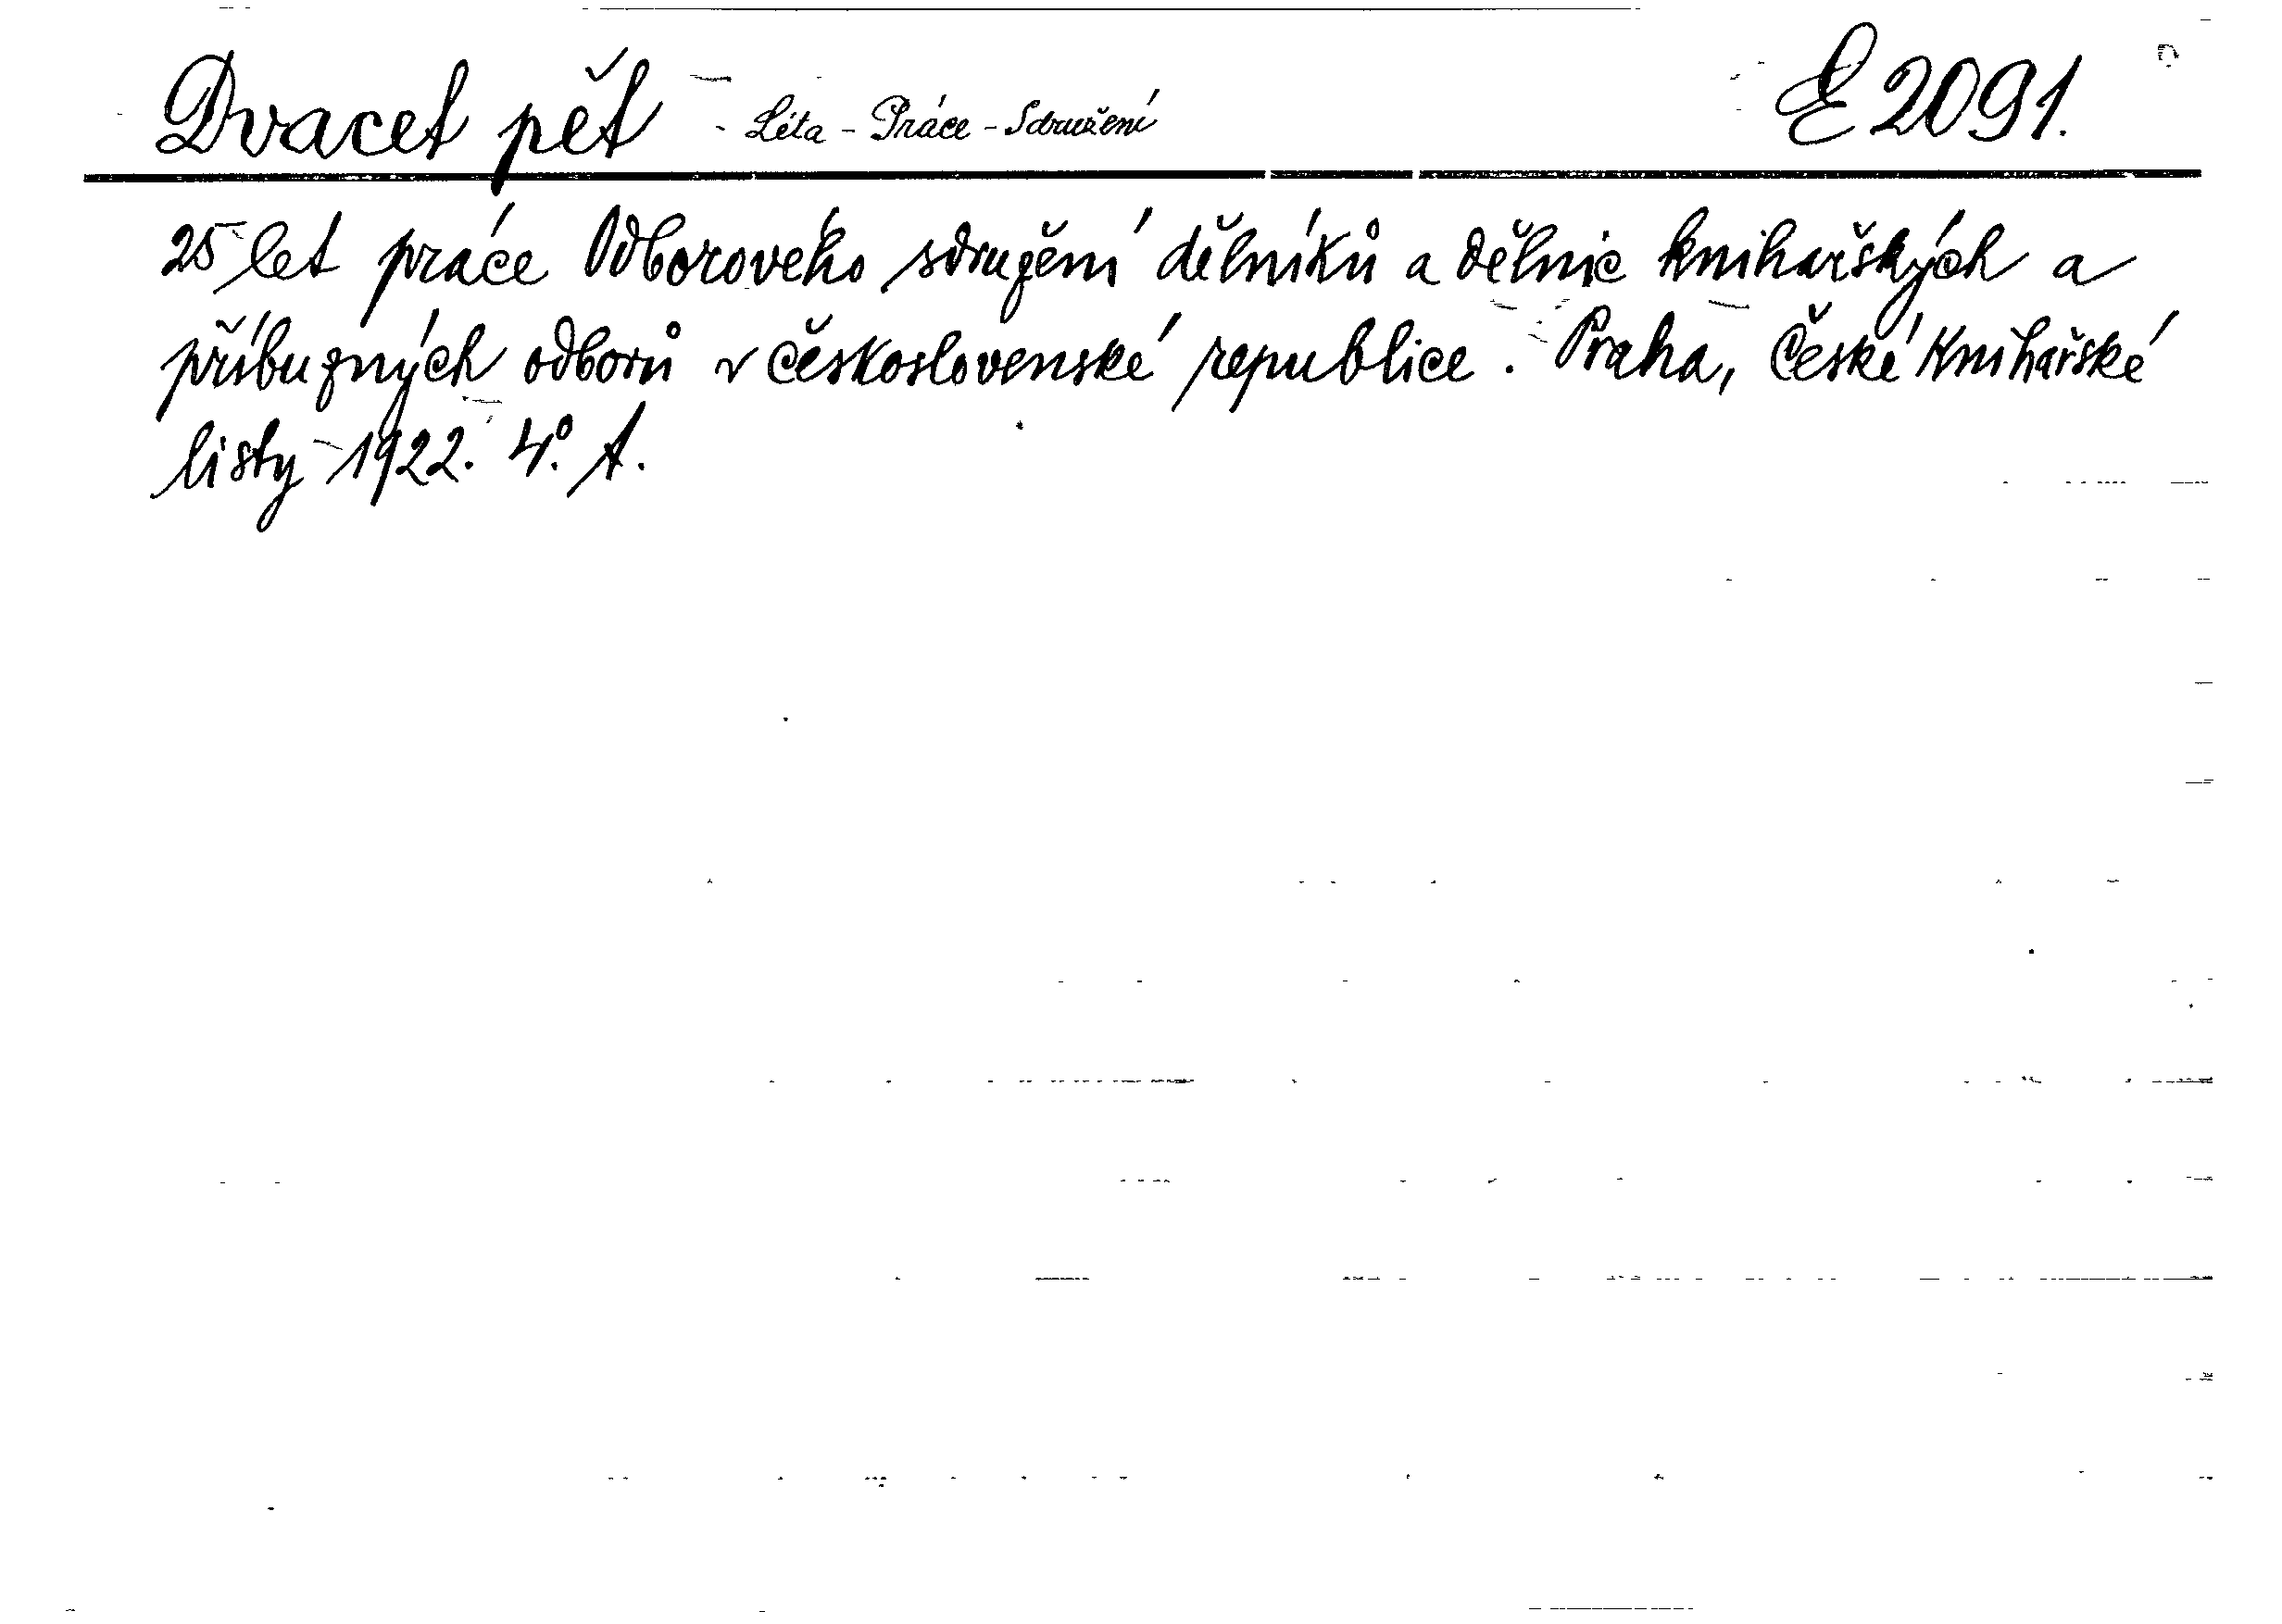 Dvacet pět - Léta - Práce - Sdružení E 2091.
25 let práce Odborového sdružení dělníků a dělnic knihařských a
příbuzných odborů v Československé republice. Praha, České knihařské
listy 1922. 4°. A.